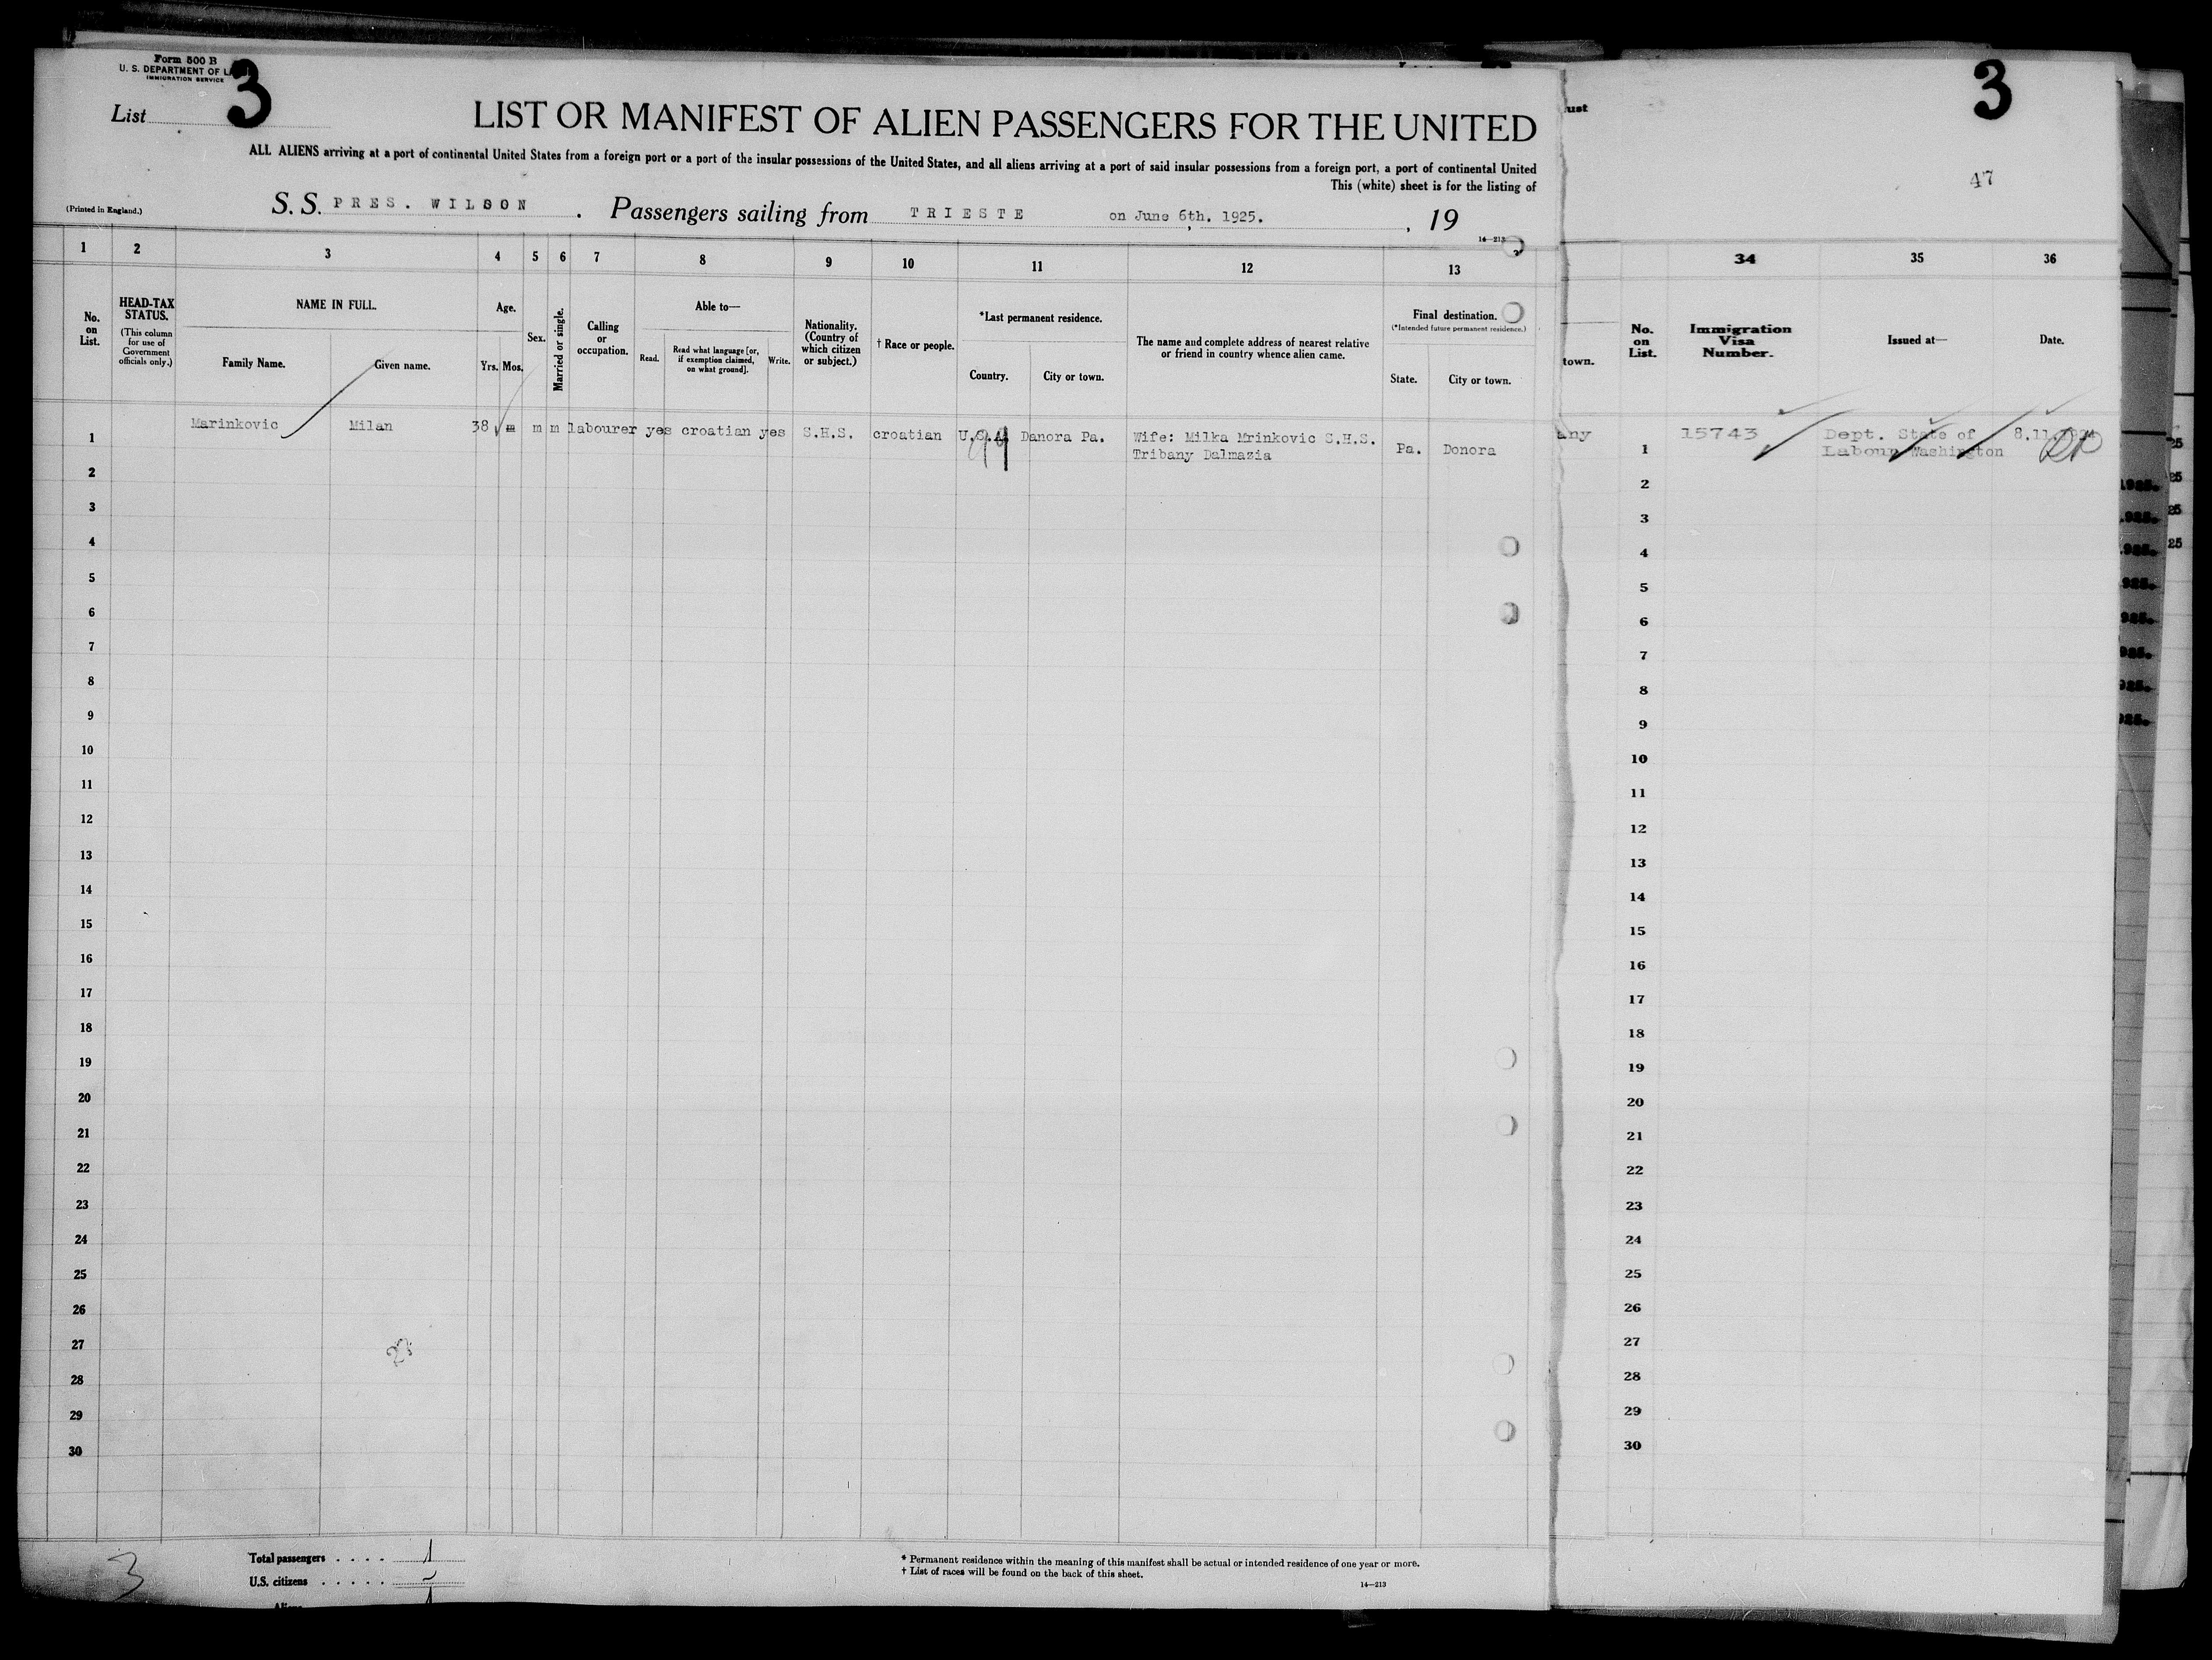 Form 500 B
U. S. DEPARTMENT OF
IMMIGRATION SERVICE
List 3
LIST OR MANIFEST OF ALIEN PASSENGERS FOR THE UNITED
ALL ALIENS arriving at a port of continental United States from a foreign port or a port of the insular possessions of the United States, and all aliens arriving at a port of said insular possessions from a foreign port, a port of continental United
This (white) sheet is for the listing of
(Printed in England.)
S. S. PRES. WILSON . Passengers sailing from TRIESTE, on June 6th. 1925. , 19
14—213
1 2 3 4 5 6 7 8 9 10 11 12 13
No. on List.
HEAD-TAX STATUS.
(This column for use of Government officials only.)
NAME IN FULL.
Family Name. Given name.
Age.
Yrs. Mos.
Sex.
Married or single.
Calling or occupation.
Able to—
Read.
Read what language [or, if exemption claimed, on what ground].
Write.
Nationality. (Country of which citizen or subject.)
† Race or people.
*Last permanent residence.
Country. City or town.
The name and complete address of nearest relative or friend in country whence alien came.
Final destination.
(*Intended future permanent residence.)
State. City or town.
1 Marinkovic Milan 38 m m m labourer yes croatian yes S.H.S. croatian U.S.A Danora Pa. Wife: Milka Mrinkovic S.H.S. Pa. Donora
Tribany Dalmazia
2
3
4
5
6
7
8
9
10
11
12
13
14
15
16
17
18
19
20
21
22
23
24
25
26
27
28
29
30
3
Total passengers . . . . 1
U.S. citizens . . . . .
* Permanent residence within the meaning of this manifest shall be actual or intended residence of one year or more.
† List of races will be found on the back of this sheet.
14—213
ust
3
47
34 35 36
town.
No. on List.
Immigration Visa Number.
Issued at—
Date.
any
1 15743 Dept. State of 8.11.1924
Labour Washington
2
3
4
5
6
7
8
9
10
11
12
13
14
15
16
17
18
19
20
21
22
23
24
25
26
27
28
29
30